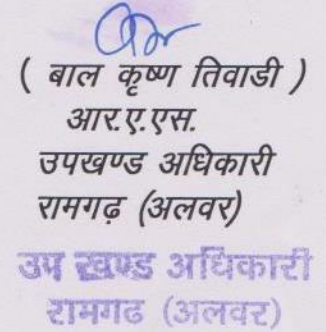 ( बाल कृष्ण तिवाडी )
आर.ए.एस.
उपखण्ड अधिकारी
रामगढ़ (अलवर)
उप खण्ड अधिकारी
रामगढ (अलवर)